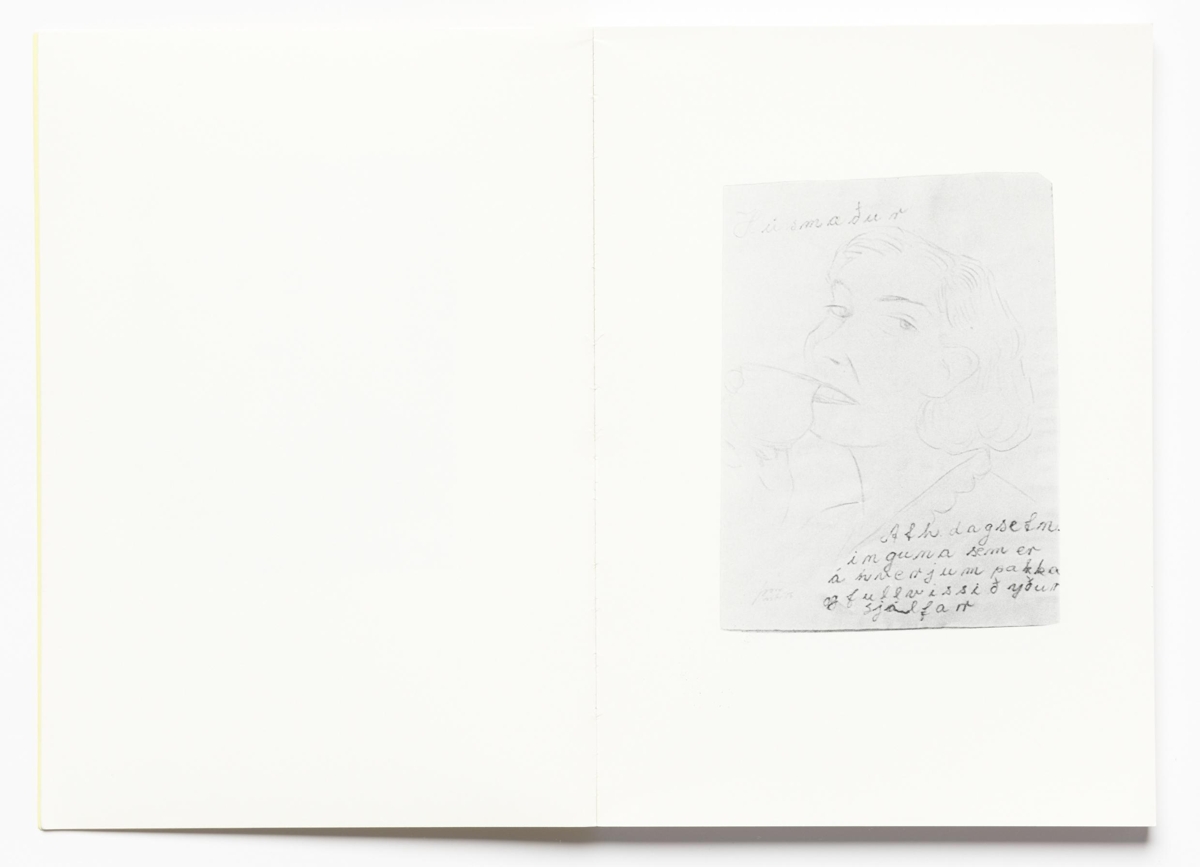 Ath dagsetn
inguna sem er
á hverjum pakka
og fullvissið yður
sjálfar